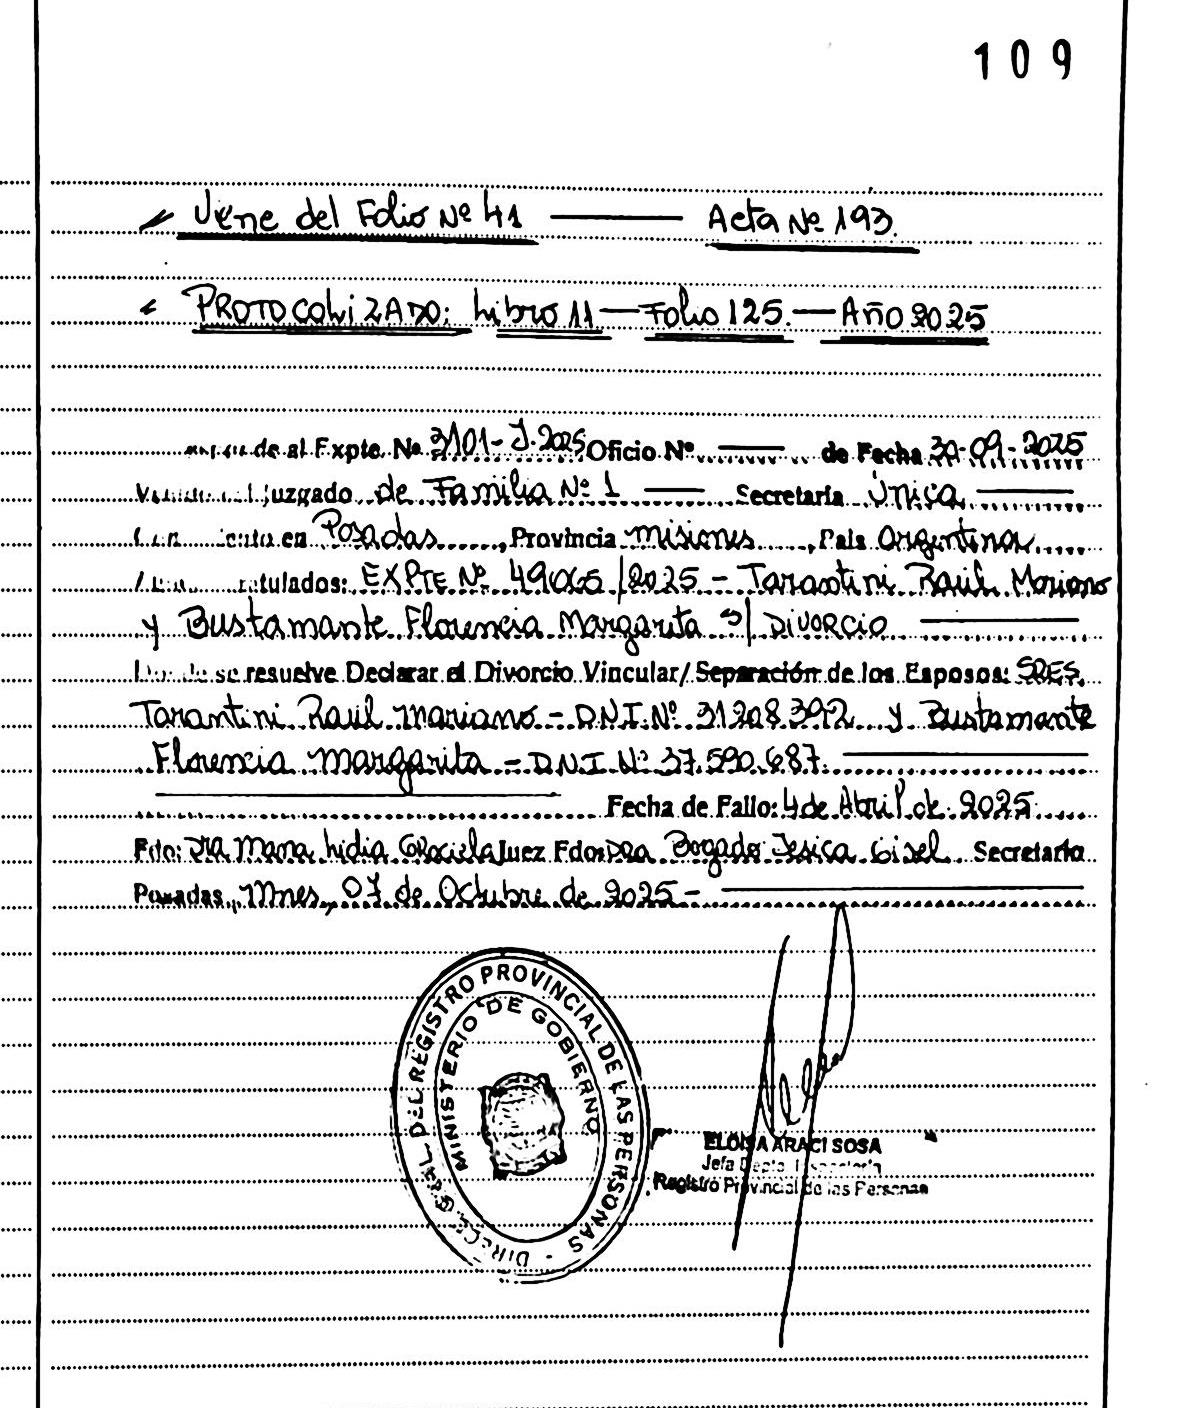 109
Viene del Folio Nº 41 — Acta Nº 193.
PROTOCOLIZADO: Libro 11 — Folio 125. — Año 2025
de al Expte. Nº 3101-J-2025 Oficio Nº — de Fecha 30-09-2025
juzgado de Familia Nº 1 — Secretaría Única —
en Posadas, Provincia misiones, País Argentina
EXPTE Nº 49065/2025 - Tarantini Raúl Mariano
y Bustamante Florencia Margarita S/ DIVORCIO —
se resuelve Declarar el Divorcio Vincular/Separación de los Esposos: SRES.
Tarantini Raúl Mariano - D.N.I. Nº 31.208.392 y Bustamante
Florencia Margarita - DNI Nº 37.590.687. —
Fecha de Fallo: 4 de Abril de 2025
Fdo: Dra Lidia Graciela Juez Fdo: DRA Bogado Jesica Gisel Secretaria
Posadas, Mnes, 07 de Octubre de 2025 - —
DEL REGISTRO PROVINCIAL DE LAS PERSONAS
MINISTERIO DE GOBIERNO
ELOISA ARACI SOSA
Jefa Depto.
Registro Provincial de las Personas